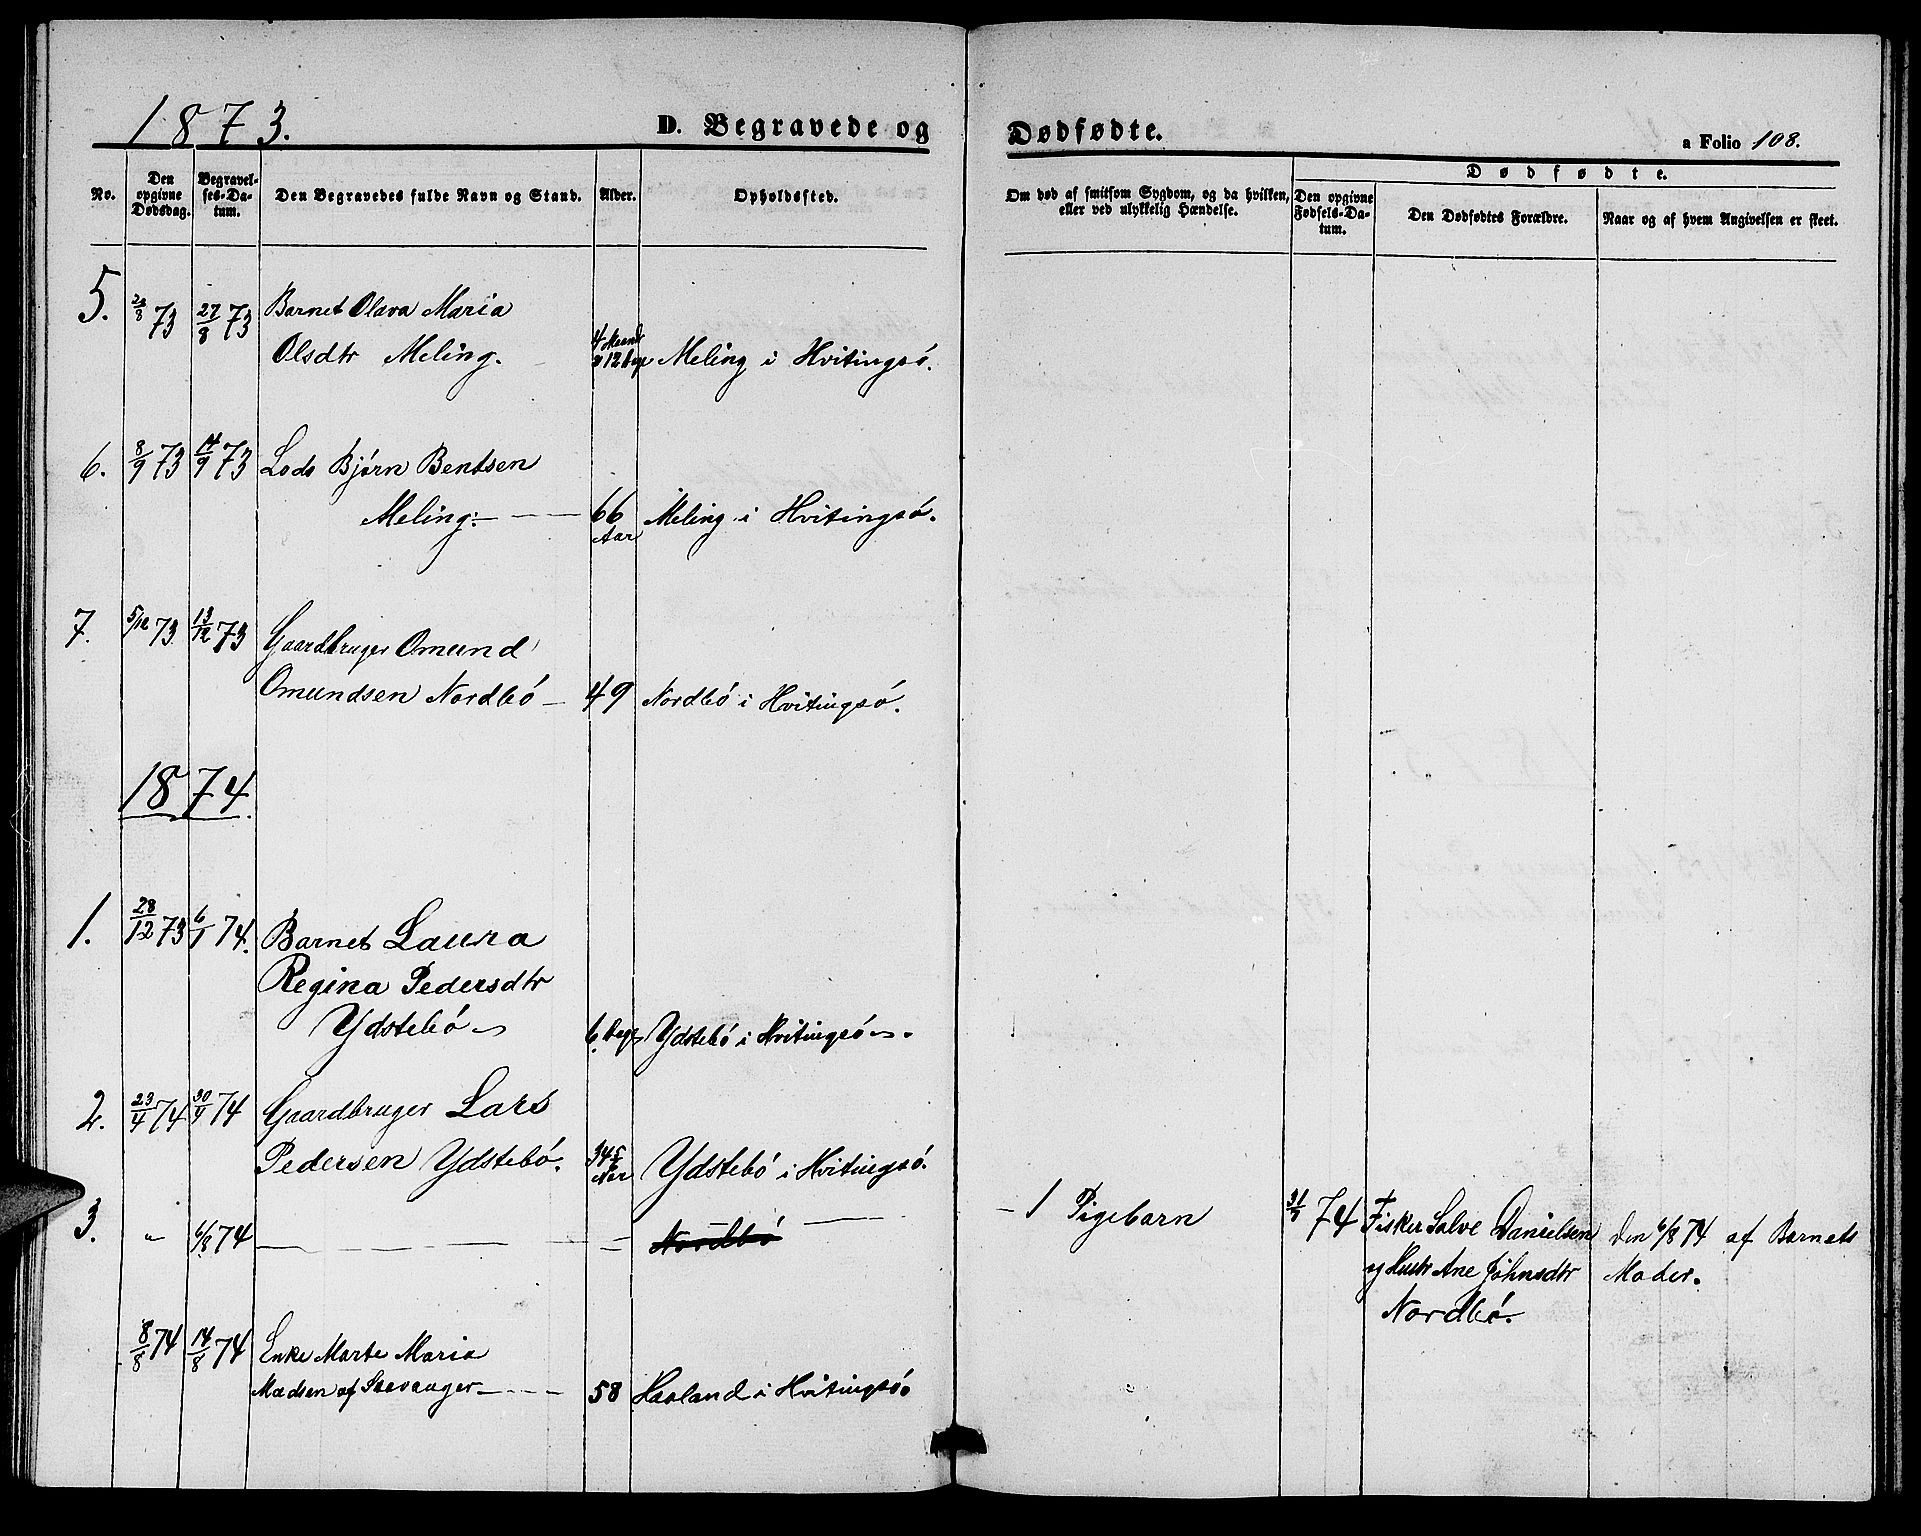 1873.
D. Begravede og
Dødfødte.
a Folio 108.
No.
Den opgivne Dødsdag.
Begravelses-Datum.
Den Begravedes fulde Navn og Stand.
Alder.
Opholdssted.
Om død af smitsom Sygdom, og da hvilken,
eller ved ulykkelig Hændelse.
Dødfødte.
Den opgivne Fødsels-Datum.
Den Dødfødtes Forældre.
Naar og af hvem Angivelsen er skeet.
5. 73 27/8 73 Barnet Olava Maria
Olsdtr Meling. 4 12 Meling i Hvitingsö.
6. 8/9 73 14/9 73 Lods Bjórn Bentsen
Meling. 66 Aar Meling i Hvitingsö.
7. 5/12 73 13/12 73 Gaardbruger Omund
Omundsen Nordbö 49 Nordbö i Hvitingsö.
1874.
1. 28/12 73 6/1 74. Barnet Laura
Regina Pedersdtr
Ydstebö 6 Dage Ydstebö i Hvitingsö.
2. 23/4 74 30/4 74 Gaardbruger Lars
Pedersen Ydstebö. 34 Aar Ydstebö i Hvitingsö.
3. " 6/8 74 — — Nordbö — 1 Pigebarn 31/7 74 Fisker Salve Danielsen Den 6/8 74 af Barnets
og Hustr Ane Johnsdtr Moder.
Nordbö.
8/8 74 14/8 74 Enke Marte Maria
Madsen af Stavanger 58 Haaland i Hvitingsö